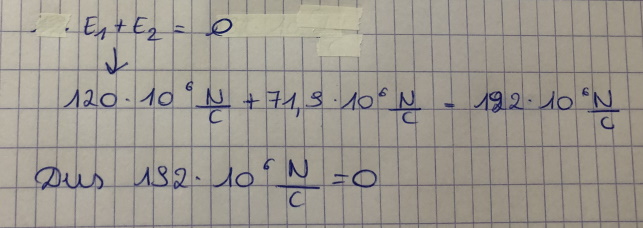 E₁ + E₂ = 0
↓
120 · 10⁶ N/C + 71,9 · 10⁶ N/C - 192 · 10⁶ N/C
Dus 192 · 10⁶ N/C = 0